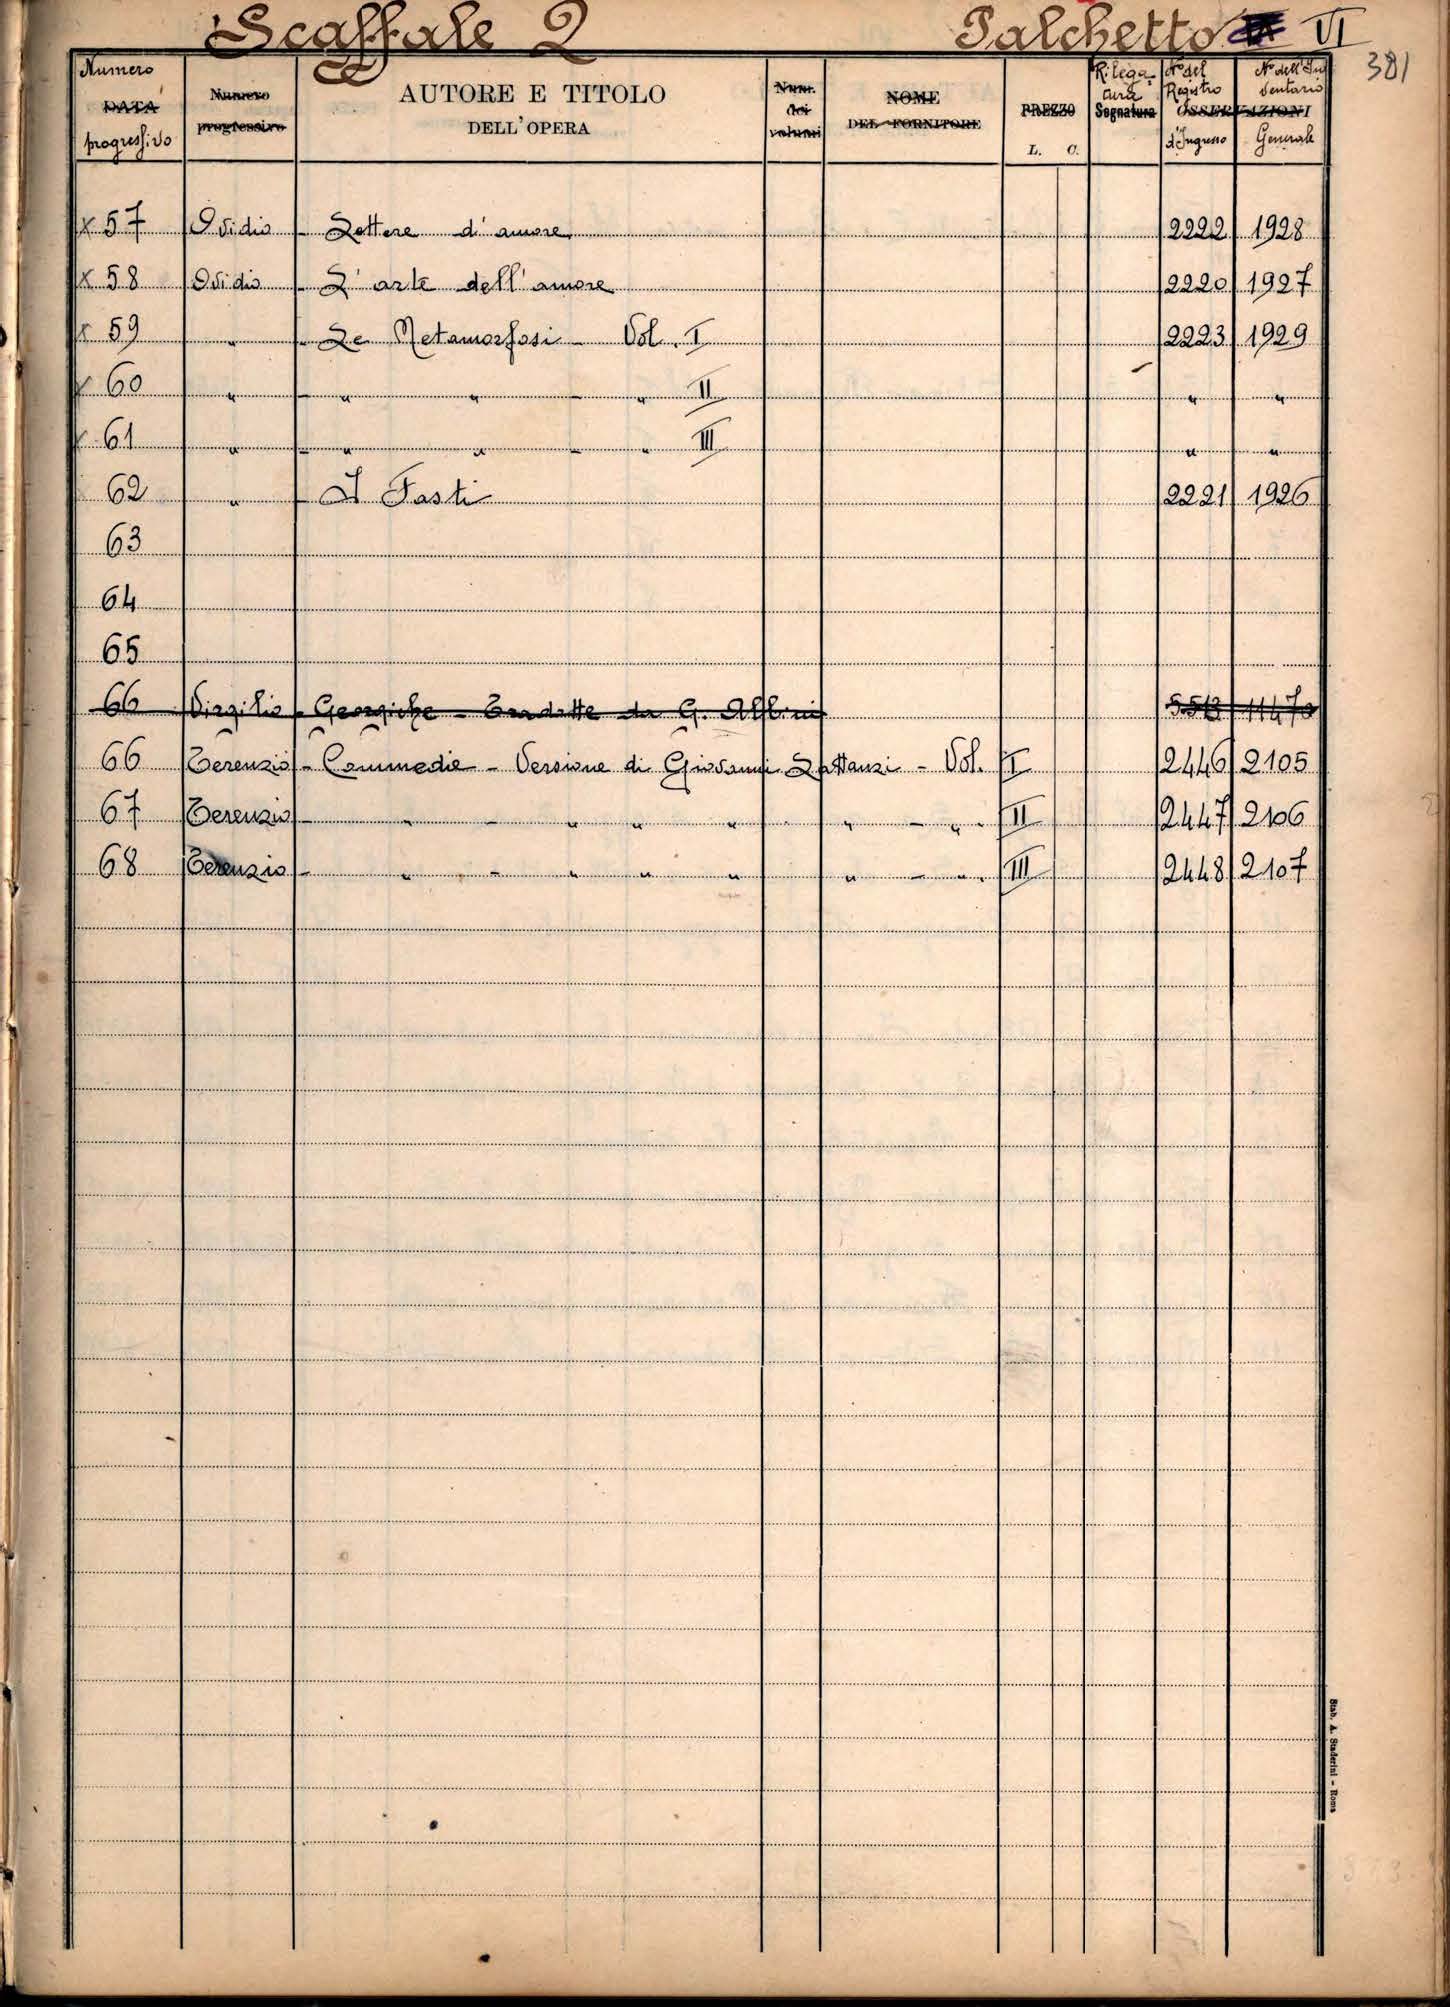 Scaffale 2 Palchetto VI
381
Numero DATA progressivo
Numero progressivo
AUTORE E TITOLO
DELL'OPERA
Num. dei volumi
NOME
DEL FORNITORE
PREZZO
L. C.
Rilegatura Segnatura
N° del Registro d'Ingresso
OSSERVAZIONI
N° dell'Inventario Generale
x 57 Ovidio - Lettere d'amore 2222 1928
x 58 Ovidio - L'arte dell'amore 2220 1927
x 59 " - Le Metamorfosi - Vol. I 2223 1929
x 60 " - " " - " II " "
x 61 " - " " - " III " "
62 " - I Fasti 2221 1926
63
64
65
66 Virgilio - Georgiche - Tradotte da G. Albini 5513 11470
66 Terenzio - Commedie - Versione di Giovanni Lattanzi - Vol. I 2446 2105
67 Terenzio - " - " " " " - ". II 2447 2106
68 Terenzio - " - " " " " - ". III 2448 2107
Stab. A. Staderini - Roma